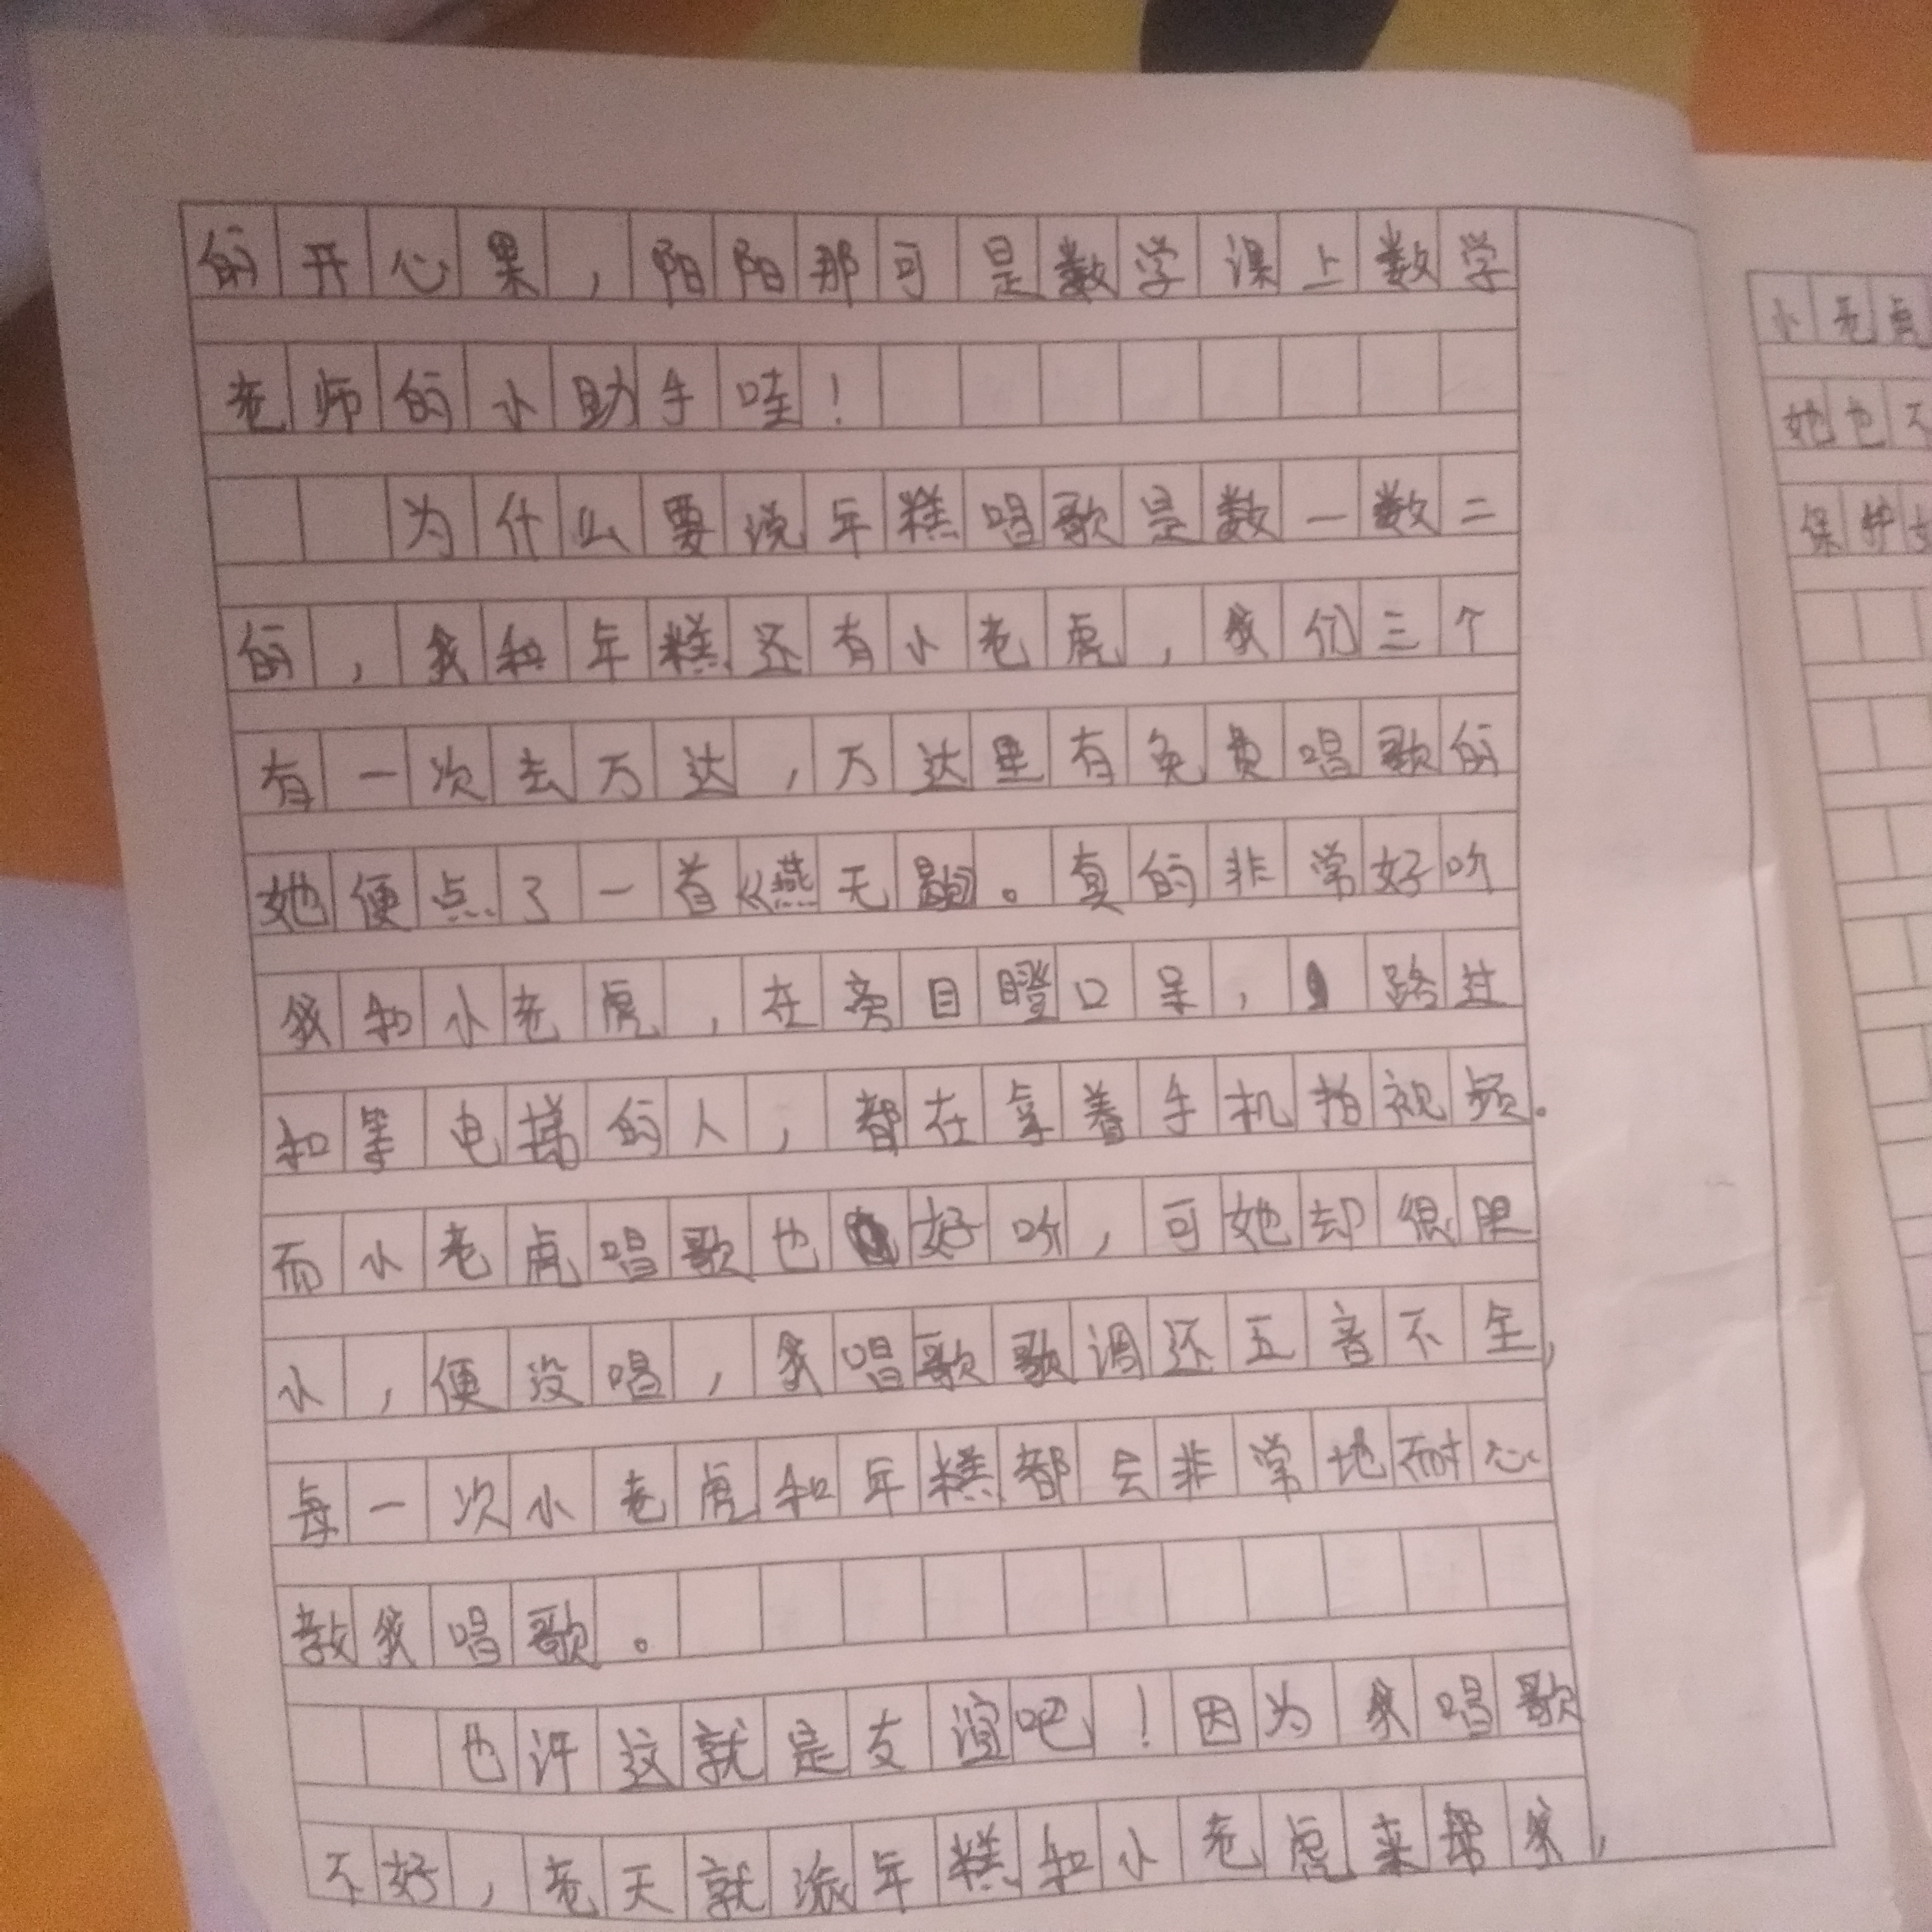 的开心果，阳阳那可是数学课上数学
老师的小助手哇！
为什么要说年糕唱歌是数一数二
的，我和年糕还有小老虎，我们三个
有一次去万达，万达里有免费唱歌的
她便点了一首《燕无歇。真的非常好听
我和小老虎，在旁目瞪口呆，路过
和等电梯的人，都在拿着手机拍视频。
而小老虎唱歌也好听，可她却很胆
小，便没唱，我唱歌歌调还五音不全，
每一次小老虎和年糕都会非常地耐心
教我唱歌。
也许这就是友谊吧！因为我唱歌
不好，老天就派年糕和小老虎来帮我，
小老虎
她也不
保护